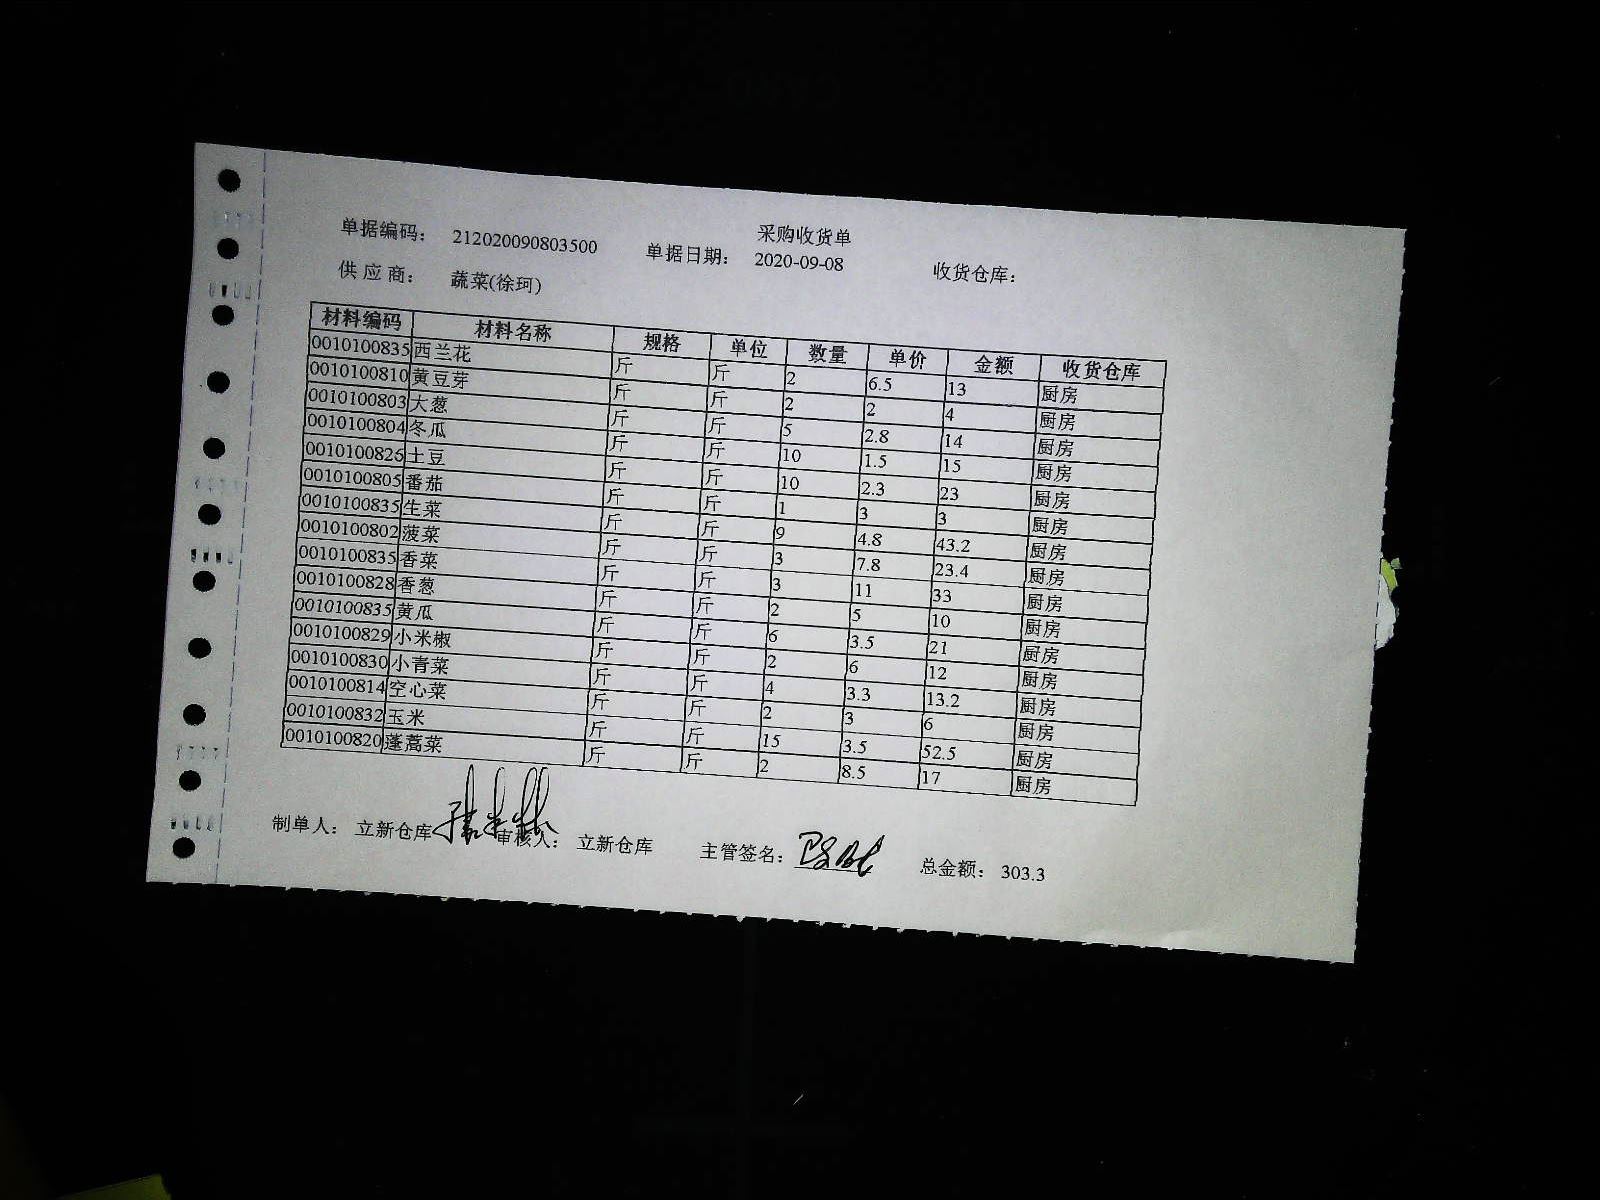 采购收货单
单据编码: 212020090803500 单据日期: 2020-09-08 收货仓库:
供 应 商: 蔬菜(徐珂)
材料编码 材料名称 规格 单位 数量 单价 金额 收货仓库
0010100835 西兰花 斤 斤 2 6.5 13 厨房
0010100810 黄豆芽 斤 斤 2 2 4 厨房
0010100803 大葱 斤 斤 5 2.8 14 厨房
0010100804 冬瓜 斤 斤 10 1.5 15 厨房
0010100826 土豆 斤 斤 10 2.3 23 厨房
0010100805 番茄 斤 斤 1 3 3 厨房
0010100835 生菜 斤 斤 9 4.8 43.2 厨房
0010100802 菠菜 斤 斤 3 7.8 23.4 厨房
0010100835 香菜 斤 斤 3 11 33 厨房
0010100828 香葱 斤 斤 2 5 10 厨房
0010100835 黄瓜 斤 斤 6 3.5 21 厨房
0010100829 小米椒 斤 斤 2 6 12 厨房
0010100830 小青菜 斤 斤 4 3.3 13.2 厨房
0010100814 空心菜 斤 斤 2 3 6 厨房
0010100832 玉米 斤 斤 15 3.5 52.5 厨房
0010100820 蓬蒿菜 斤 斤 2 8.5 17 厨房
制单人: 立新仓库 审核人: 立新仓库 主管签名: 总金额: 303.3